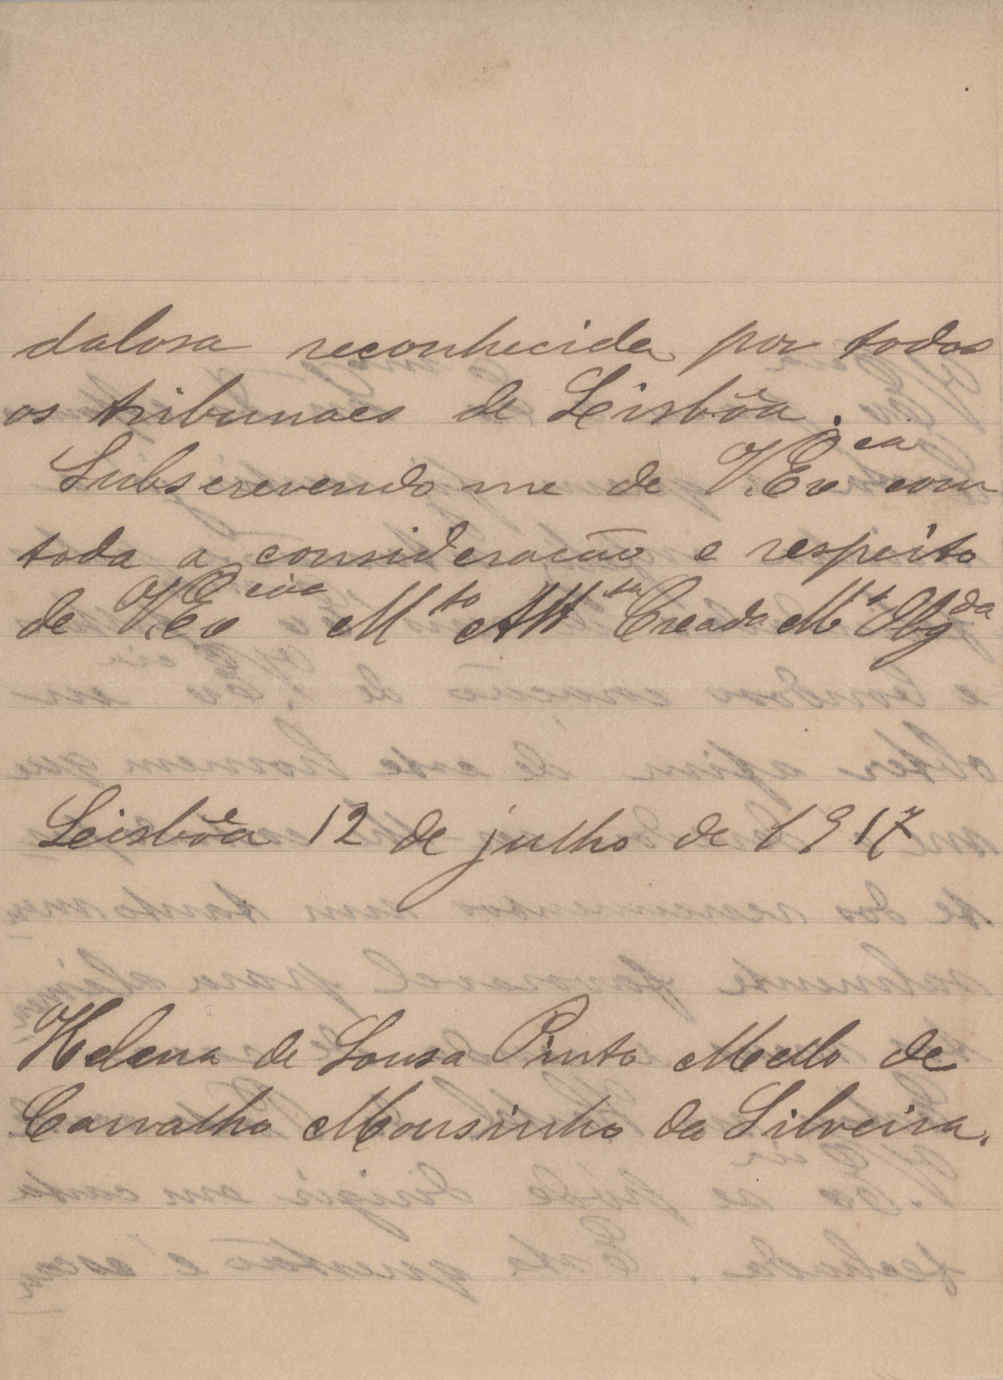 dalosa reconhecida por todos
os tribunaes de Lisbôa.
Subscrevendo me de V. Ex cia com
toda a consideração e respeito
de V. Ex cia M to Att ta Creada M to Obg da
Lisbôa 12 de julho de 1917
Helena de Sousa Pinto Mello de
Carvalho Mousinho da Silveira.